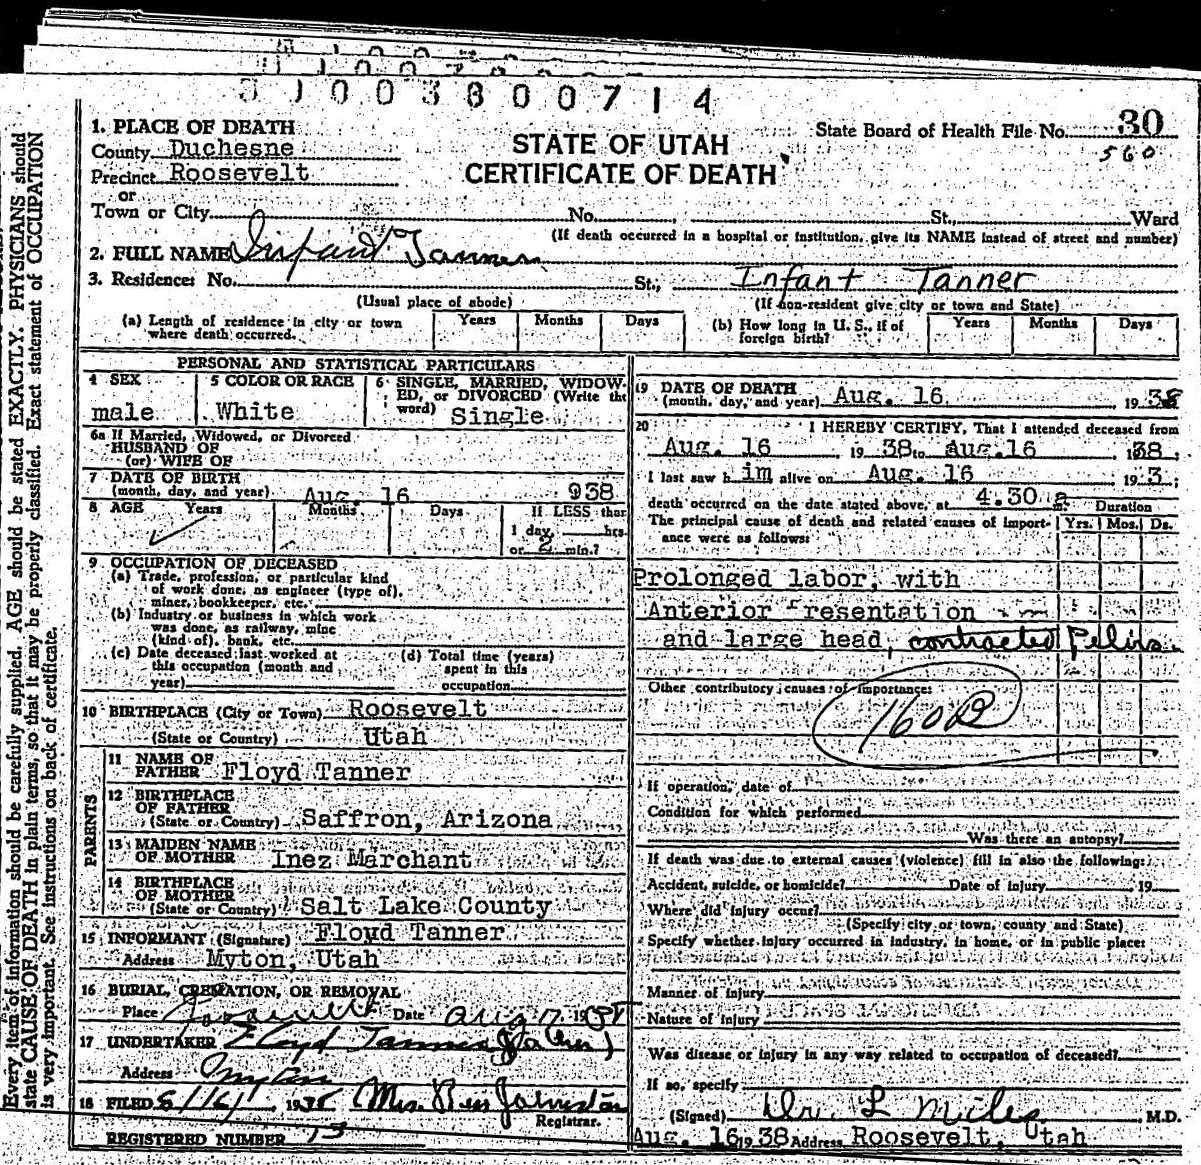 3 1 0 0 3 8 0 0 7 1 4
STATE OF UTAH
CERTIFICATE OF DEATH
State Board of Health File No. 30
560
1. PLACE OF DEATH
County Duchesne
Precinct Roosevelt
or
Town or City No. St., Ward
(If death occurred in a hospital or institution, give its NAME instead of street and number)
2. FULL NAME Infant Tanner
3. Residence: No. St., Infant Tanner
(Usual place of abode) (If non-resident give city or town and State)
(a) Length of residence in city or town where death occurred. Years Months Days
(b) How long in U. S., if of foreign birth? Years Months Days
PERSONAL AND STATISTICAL PARTICULARS
4 SEX
male
5 COLOR OR RACE
White
6 SINGLE, MARRIED, WIDOW-
ED, or DIVORCED (Write the
word) Single
6a If Married, Widowed, or Divorced
HUSBAND OF
(or) WIFE OF
7 DATE OF BIRTH
(month, day, and year) Aug. 16 938
8 AGE Years Months Days If LESS than
1 day, hrs.
or 2 min.?
9 OCCUPATION OF DECEASED
(a) Trade, profession, or particular kind
of work done, as engineer (type of),
miner, bookkeeper, etc.
(b) Industry or business in which work
was done, as railway, mine
(kind of), bank, etc.
(c) Date deceased last worked at
this occupation (month and
year)
(d) Total time (years)
spent in this
occupation
10 BIRTHPLACE (City or Town) Roosevelt
(State or Country) Utah
PARENTS
11 NAME OF
FATHER Floyd Tanner
12 BIRTHPLACE
OF FATHER
(State or Country) Saffron, Arizona
13 MAIDEN NAME
OF MOTHER Inez Marchant
14 BIRTHPLACE
OF MOTHER
(State or Country) Salt Lake County
15 INFORMANT (Signature) Floyd Tanner
Address Myton, Utah
16 BURIAL, CREMATION, OR REMOVAL
Place Roosevelt Date Aug 17, 1938
17 UNDERTAKER Floyd Tanner
Address Myton
18 FILED 8/16/ 1938 Mrs. Johnston
Registrar.
REGISTERED NUMBER 13
19 DATE OF DEATH
(month, day, and year) Aug. 16 1938
20 I HEREBY CERTIFY, That I attended deceased from
Aug. 16 19 38 to Aug. 16 1938;
I last saw h im alive on Aug. 16 193;
death occurred on the date stated above, at 4.30 a m.
Duration
The principal cause of death and related causes of import-
ance were as follows:
Yrs. Mos. Ds.
Prolonged labor, with
Anterior Presentation
and large head, contracted Pelvis.
Other contributory causes of importance:
160B
If operation, date of
Condition for which performed
Was there an autopsy?
If death was due to external causes (violence) fill in also the following:
Accident, suicide, or homicide? Date of injury 19
Where did injury occur?
(Specify city or town, county and State)
Specify whether injury occurred in industry, in home, or in public place:
Manner of injury
Nature of injury
Was disease or injury in any way related to occupation of deceased?
If so, specify
(Signed) Dr. L Miles M.D.
Aug. 16 19 38 Address Roosevelt, Utah
Every item of information should be carefully supplied. AGE should be stated EXACTLY. PHYSICIANS should
state CAUSE OF DEATH in plain terms, so that it may be properly classified. Exact statement of OCCUPATION
is very important. See instructions on back of certificate.